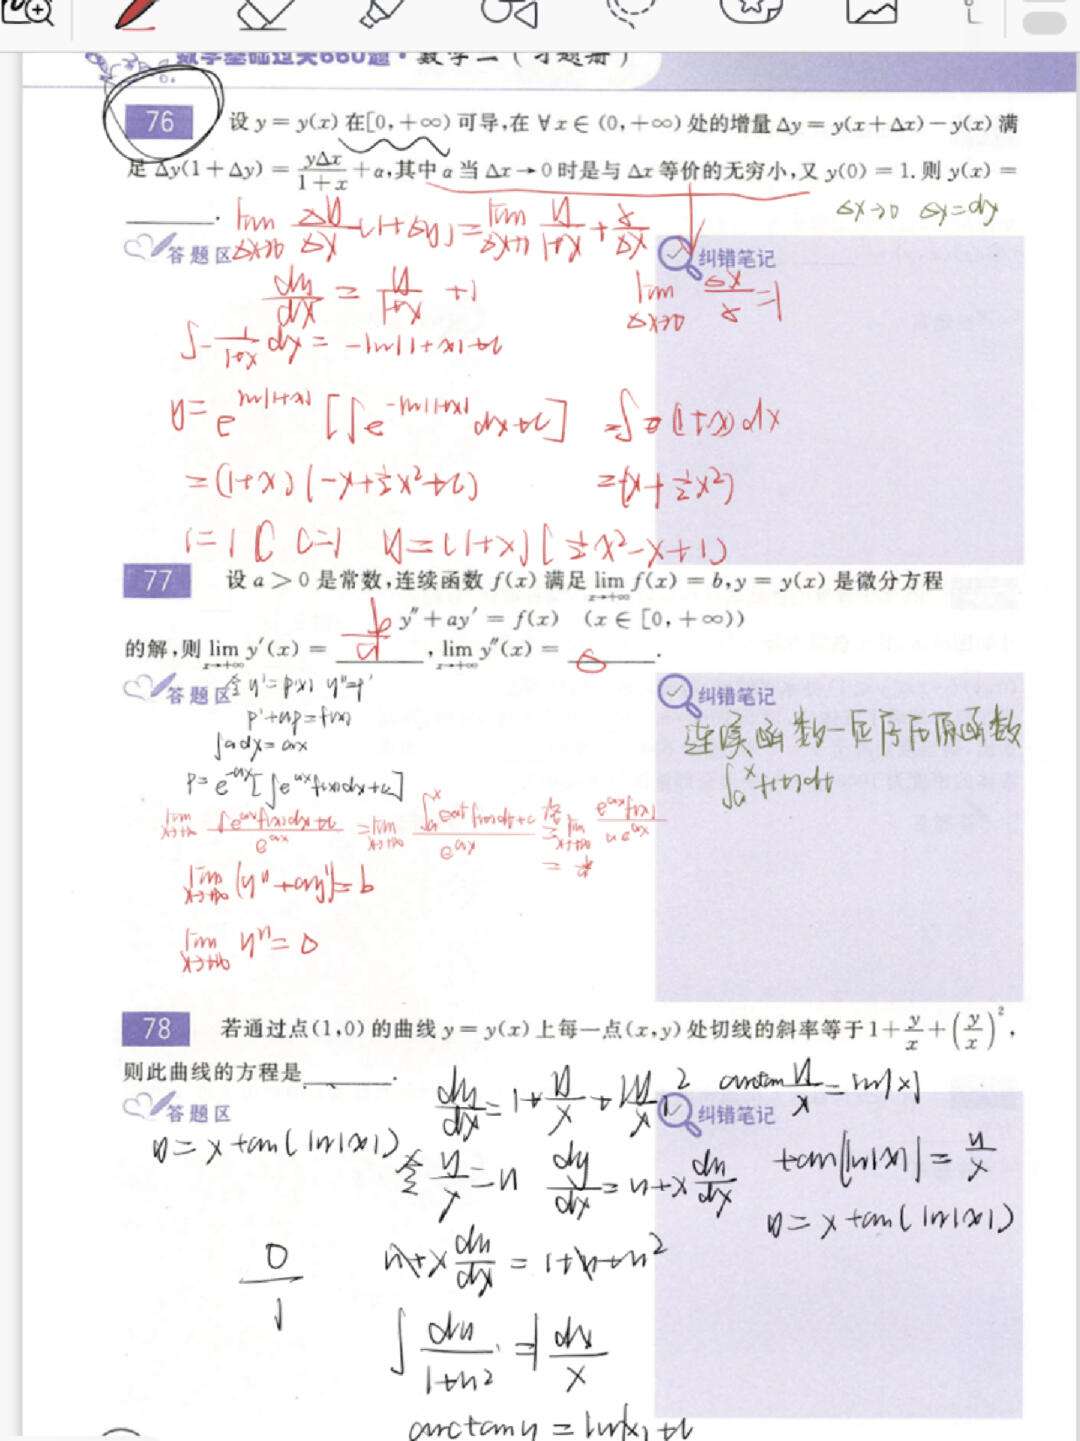 数学基础过关660题·数学二（习题册）
76 设 y = y(x) 在[0,+∞) 可导,在 ∀x∈(0,+∞) 处的增量 Δy = y(x+Δx)−y(x) 满
足 Δy(1+Δy) = yΔx/(1+x) + α,其中 α 当 Δx→0 时是与 Δx 等价的无穷小,又 y(0) = 1. 则 y(x) =
______.
Δx→0 Δy=dy
lim Δx→0 Δy/Δx (1+Δy) = lim Δx→0 y/(1+x) + α/Δx
答题区
纠错笔记
dy/dx = y/(1+x) +1
lim Δx→0 Δx/α =1
∫-1/(1+x) dx = -ln|1+x|+c
y= e^{ln|1+x|} [∫e^{-ln|1+x|} dx+c] =∫ (1+x) dx
=(1+x)(-x+½x²+c) =(x+½x²)
1=1 C C=1 y=(1+x)(½x²-x+1)
77 设 a > 0 是常数,连续函数 f(x) 满足 lim x→+∞ f(x) = b,y = y(x) 是微分方程
y″ + ay′ = f(x) (x∈[0,+∞))
的解,则 lim x→+∞ y′(x) = b/a , lim x→+∞ y″(x) = 0 .
答题区
令 y'=p(x) y''=p'
纠错笔记
p'+ap=f(x)
∫adx=ax
连续函数一定存在原函数
∫a^x f(t)dt
p=e^{-ax}[∫e^{ax}f(x)dx+c]
lim x→+∞ (∫e^{ax}f(x)dx+c)/e^{ax} = lim x→+∞ (∫a^x e^{at}f(t)dt+c)/e^{ax} = lim x→+∞ e^{ax}f(x)/(a e^{ax})
lim x→+∞ (y''+ay')=b
lim x→+∞ y''=0
78 若通过点(1,0) 的曲线 y = y(x) 上每一点(x,y) 处切线的斜率等于 1 + y/x + (y/x)²,
则此曲线的方程是______.
dy/dx = 1+ y/x + (y/x)² arctan y/x = ln|x|
答题区
纠错笔记
y= x tan(ln|x|)
令 y/x =u dy/dx = u+x du/dx
tan(ln|x|) = y/x
y= x tan(ln|x|)
u+x du/dx = 1+u+u²
0/1
∫ du/(1+u²) = ∫ dx/x
arctan u = ln|x|+c